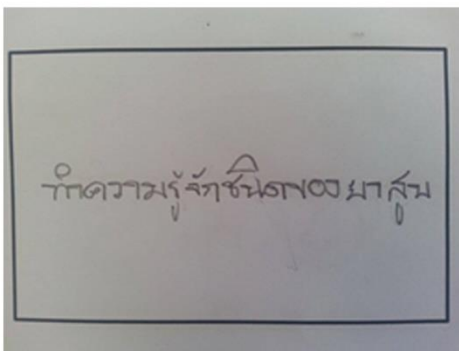 ทำความรู้จักชนิดของยาสูบ